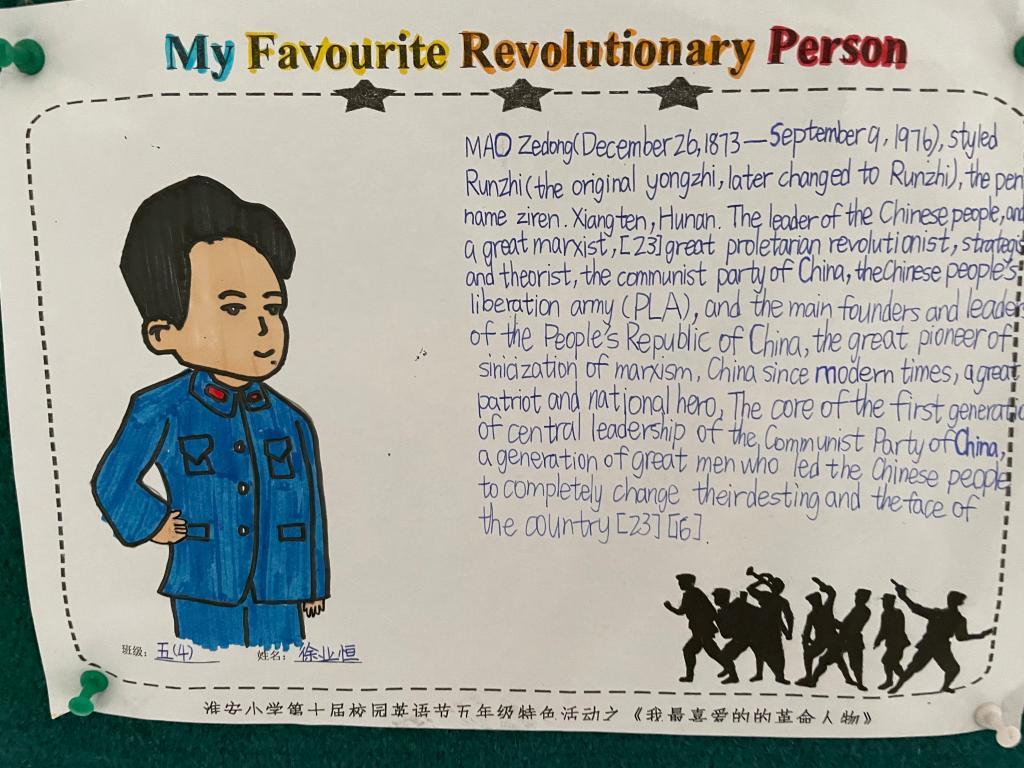 My Favourite Revolutionary Person
MAO Zedong(December 26,1873—September 9, 1976), styled
Runzhi(the original yongzhi, later changed to Runzhi), the pen
name ziren. Xiangten, Hunan. The leader of the Chinese people, and
a great marxist,[23]great proletarian revolutionist, strategis
and theorist, the communist party of China, the Chinese people's
liberation army (PLA), and the main founders and leaders
of the People's Republic of China, the great pioneer of
sinicization of marxism, China since modern times, a great
patriot and national hero, The core of the first generatio
of central leadership of the, Communist Party of China,
a generation of great men who led the Chinese people
to completely change their desting and the face of
the country[23][16].
班级：五(4) 姓名：徐业恒
淮安小学第十届校园英语节五年级特色活动之《我最喜爱的的革命人物》